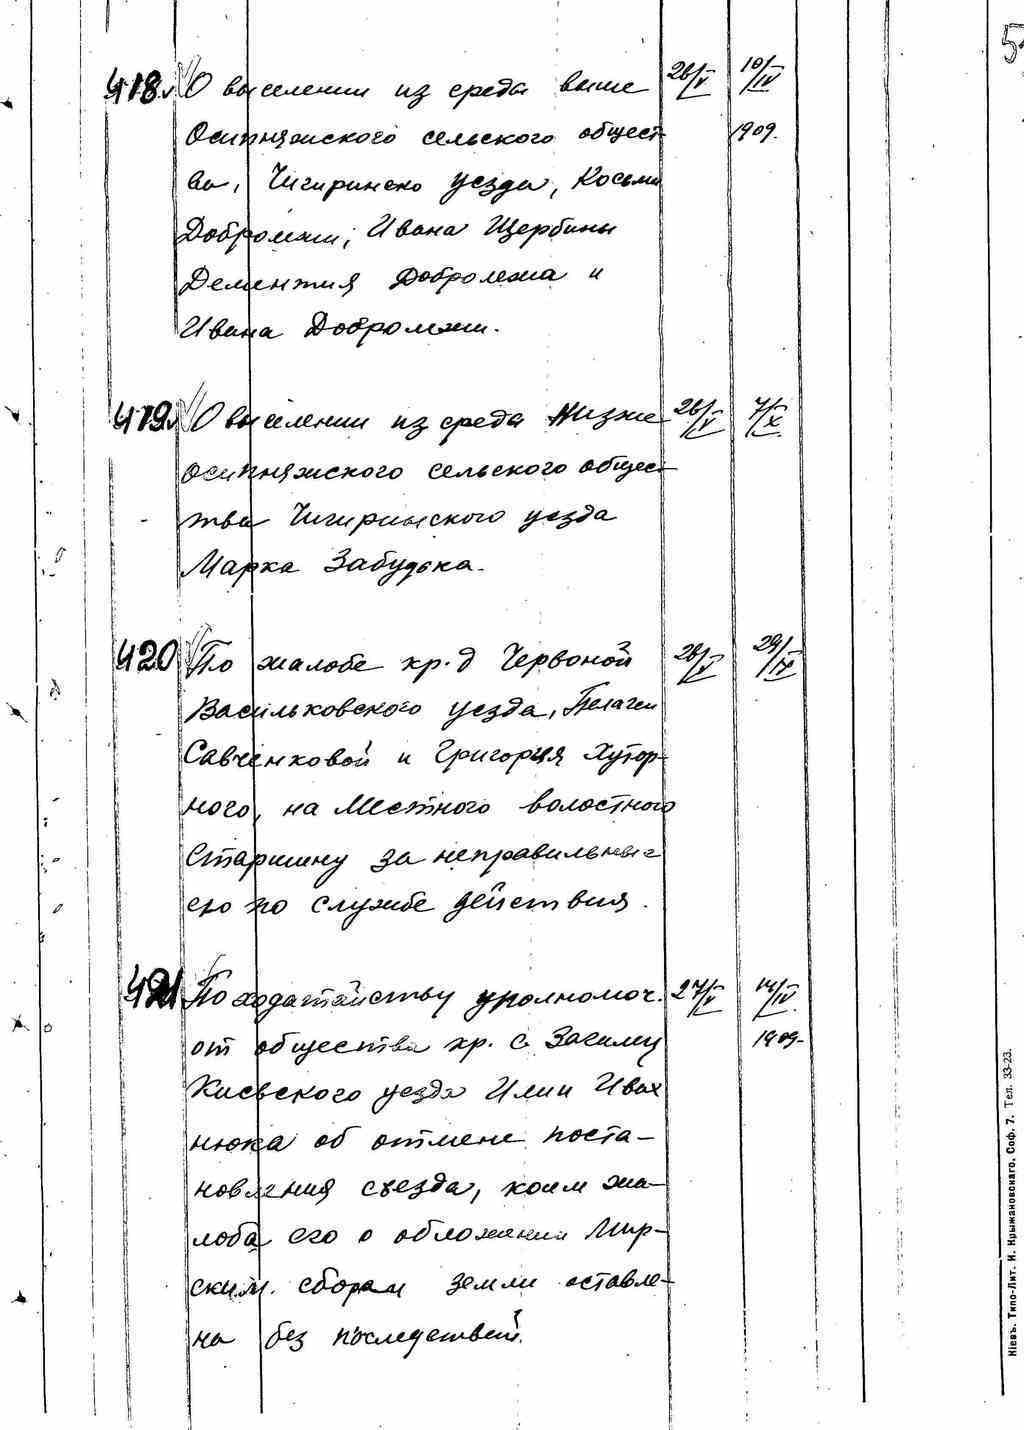 418 О выселении из среды выше 26/V 10/IV
Осипняжского сельского общест- 1909.
ва, Чигиринско уезда, Косьмы
Добролежи, Ивана Щербины
Дементия Добролежа и
Ивана Добролежи.
419 О выселении из среды Низже 26/V 7/X
осипняжского сельского общес-
тва Чигиринского уезда
Марка Забудька.
420 По жалобе кр. д Червоной 26/V 29/IX
Васильковского уезда, Пелагеи
Савченковой и Григория Хутор-
ного, на Местного волостного
Старшину за неправильные
его по службе действия.
421 По ходатайству уполномоч. 27/V 14/IV
от общества кр. с. 1909-
Киевского уезда Илии Ивах
нюка об отмене поста-
новления съезда, коим жа-
лоба его о обложении Мир-
ским. сборам земли оставле-
на без последствей.
Кіевъ. Типо-Лит. И. Крыжановскаго. Соф. 7. Тел. 33-23.